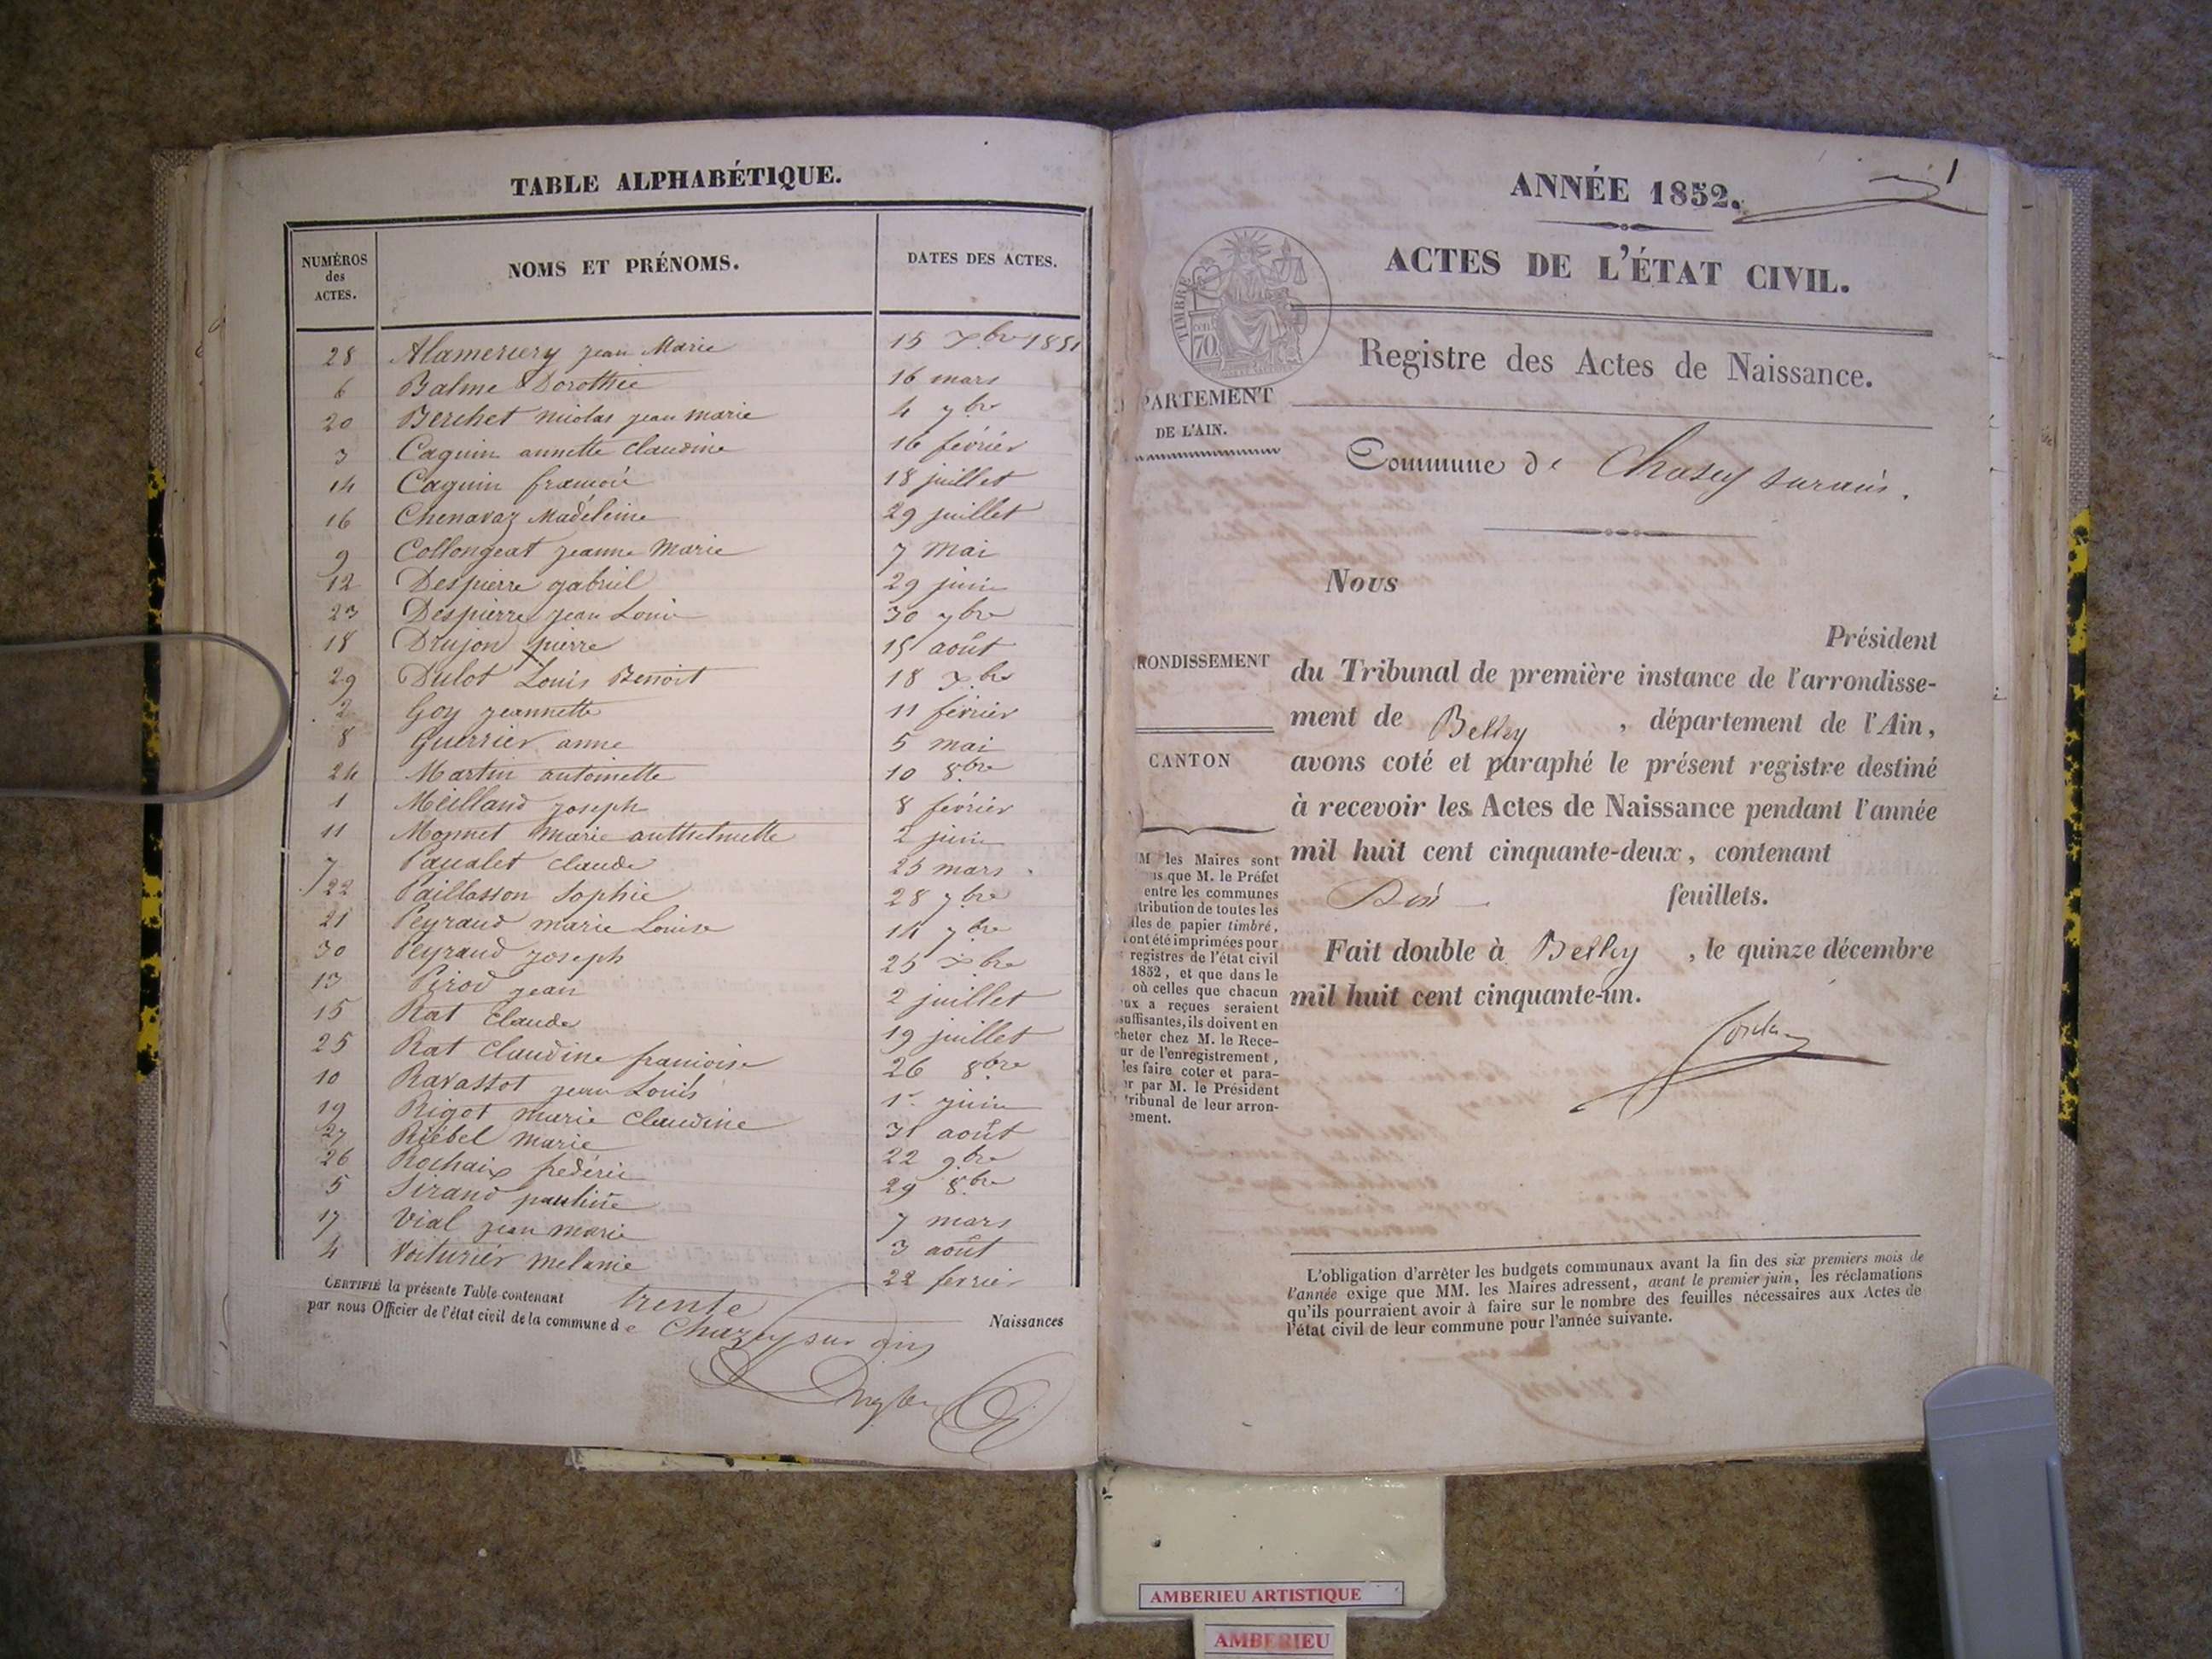 TABLE ALPHABÉTIQUE.
NUMÉROS des ACTES. NOMS ET PRÉNOMS. DATES DES ACTES.
28 Alamercery jean Marie 15 Xbre 1851
6 Balme Dorothée 16 mars
20 Berchet nicolas jean marie 4 7bre
3 Caquin annette claudine 16 février
14 Caquin francois 18 juillet
16 Chenavaz Madéleine 29 juillet
9 Collongeat jeanne Marie 7 mai
12 Despierre gabriel 29 juin
23 Despierre jean Louis 30 7bre
18 Drujon pierre 15 août
29 Dulot Louis Benoit 18 Xbre
2 Goy jeannette 11 février
8 Guerrier anne 5 mai
24 Martin antoinette 10 8bre
1 Meilland joseph 8 février
11 Monnet Marie 2 juin
7 claude 25 mars
22 Paillasson Sophie 28 7bre
21 Peyraud marie Louise 14 7bre
30 Peyraud joseph 25 Xbre
13 Pirod jean 2 juillet
15 Rat Claude 19 juillet
25 Rat Claudine francoise 26 8bre
10 Ravassot jean Louis 1er juin
19 Rigot marie Claudine 31 août
27 Riébel marie 22 9bre
26 Rochaix frédéric 29 8bre
5 Sirand pauline 7 mars
17 Vial jean marie 3 août
4 Voiturier melanie 22 fevrier
CERTIFIÉ la présente Table contenant trente Naissances
par nous Officier de l'état civil de la commune de Chazey sur ain
1
ANNÉE 1852.
ACTES DE L'ÉTAT CIVIL.
TIMBRE
70
Registre des Actes de Naissance.
PARTEMENT
DE L'AIN.
Commune de Chasey surain.
Nous
Président
RONDISSEMENT
du Tribunal de première instance de l'arrondisse-
ment de Belley, département de l'Ain,
avons coté et paraphé le présent registre destiné
à recevoir les Actes de Naissance pendant l'année
mil huit cent cinquante-deux, contenant
feuillets.
Fait double à Belley, le quinze décembre
mil huit cent cinquante-un.
CANTON
M les Maires sont
is que M. le Préfet
entre les communes
tribution de toutes les
lles de papier timbré,
ont été imprimées pour
registres de l'état civil
1852, et que dans le
où celles que chacun
ux a reçues seraient
suffisantes, ils doivent en
cheter chez M. le Rece-
ur de l'enregistrement,
les faire coter et para-
er par M. le Président
ribunal de leur arron-
ement.
L'obligation d'arrêter les budgets communaux avant la fin des six premiers mois de
l'année exige que MM. les Maires adressent, avant le premier juin, les réclamations
qu'ils pourraient avoir à faire sur le nombre des feuilles nécessaires aux Actes de
l'état civil de leur commune pour l'année suivante.
AMBERIEU ARTISTIQUE
AMBERIEU